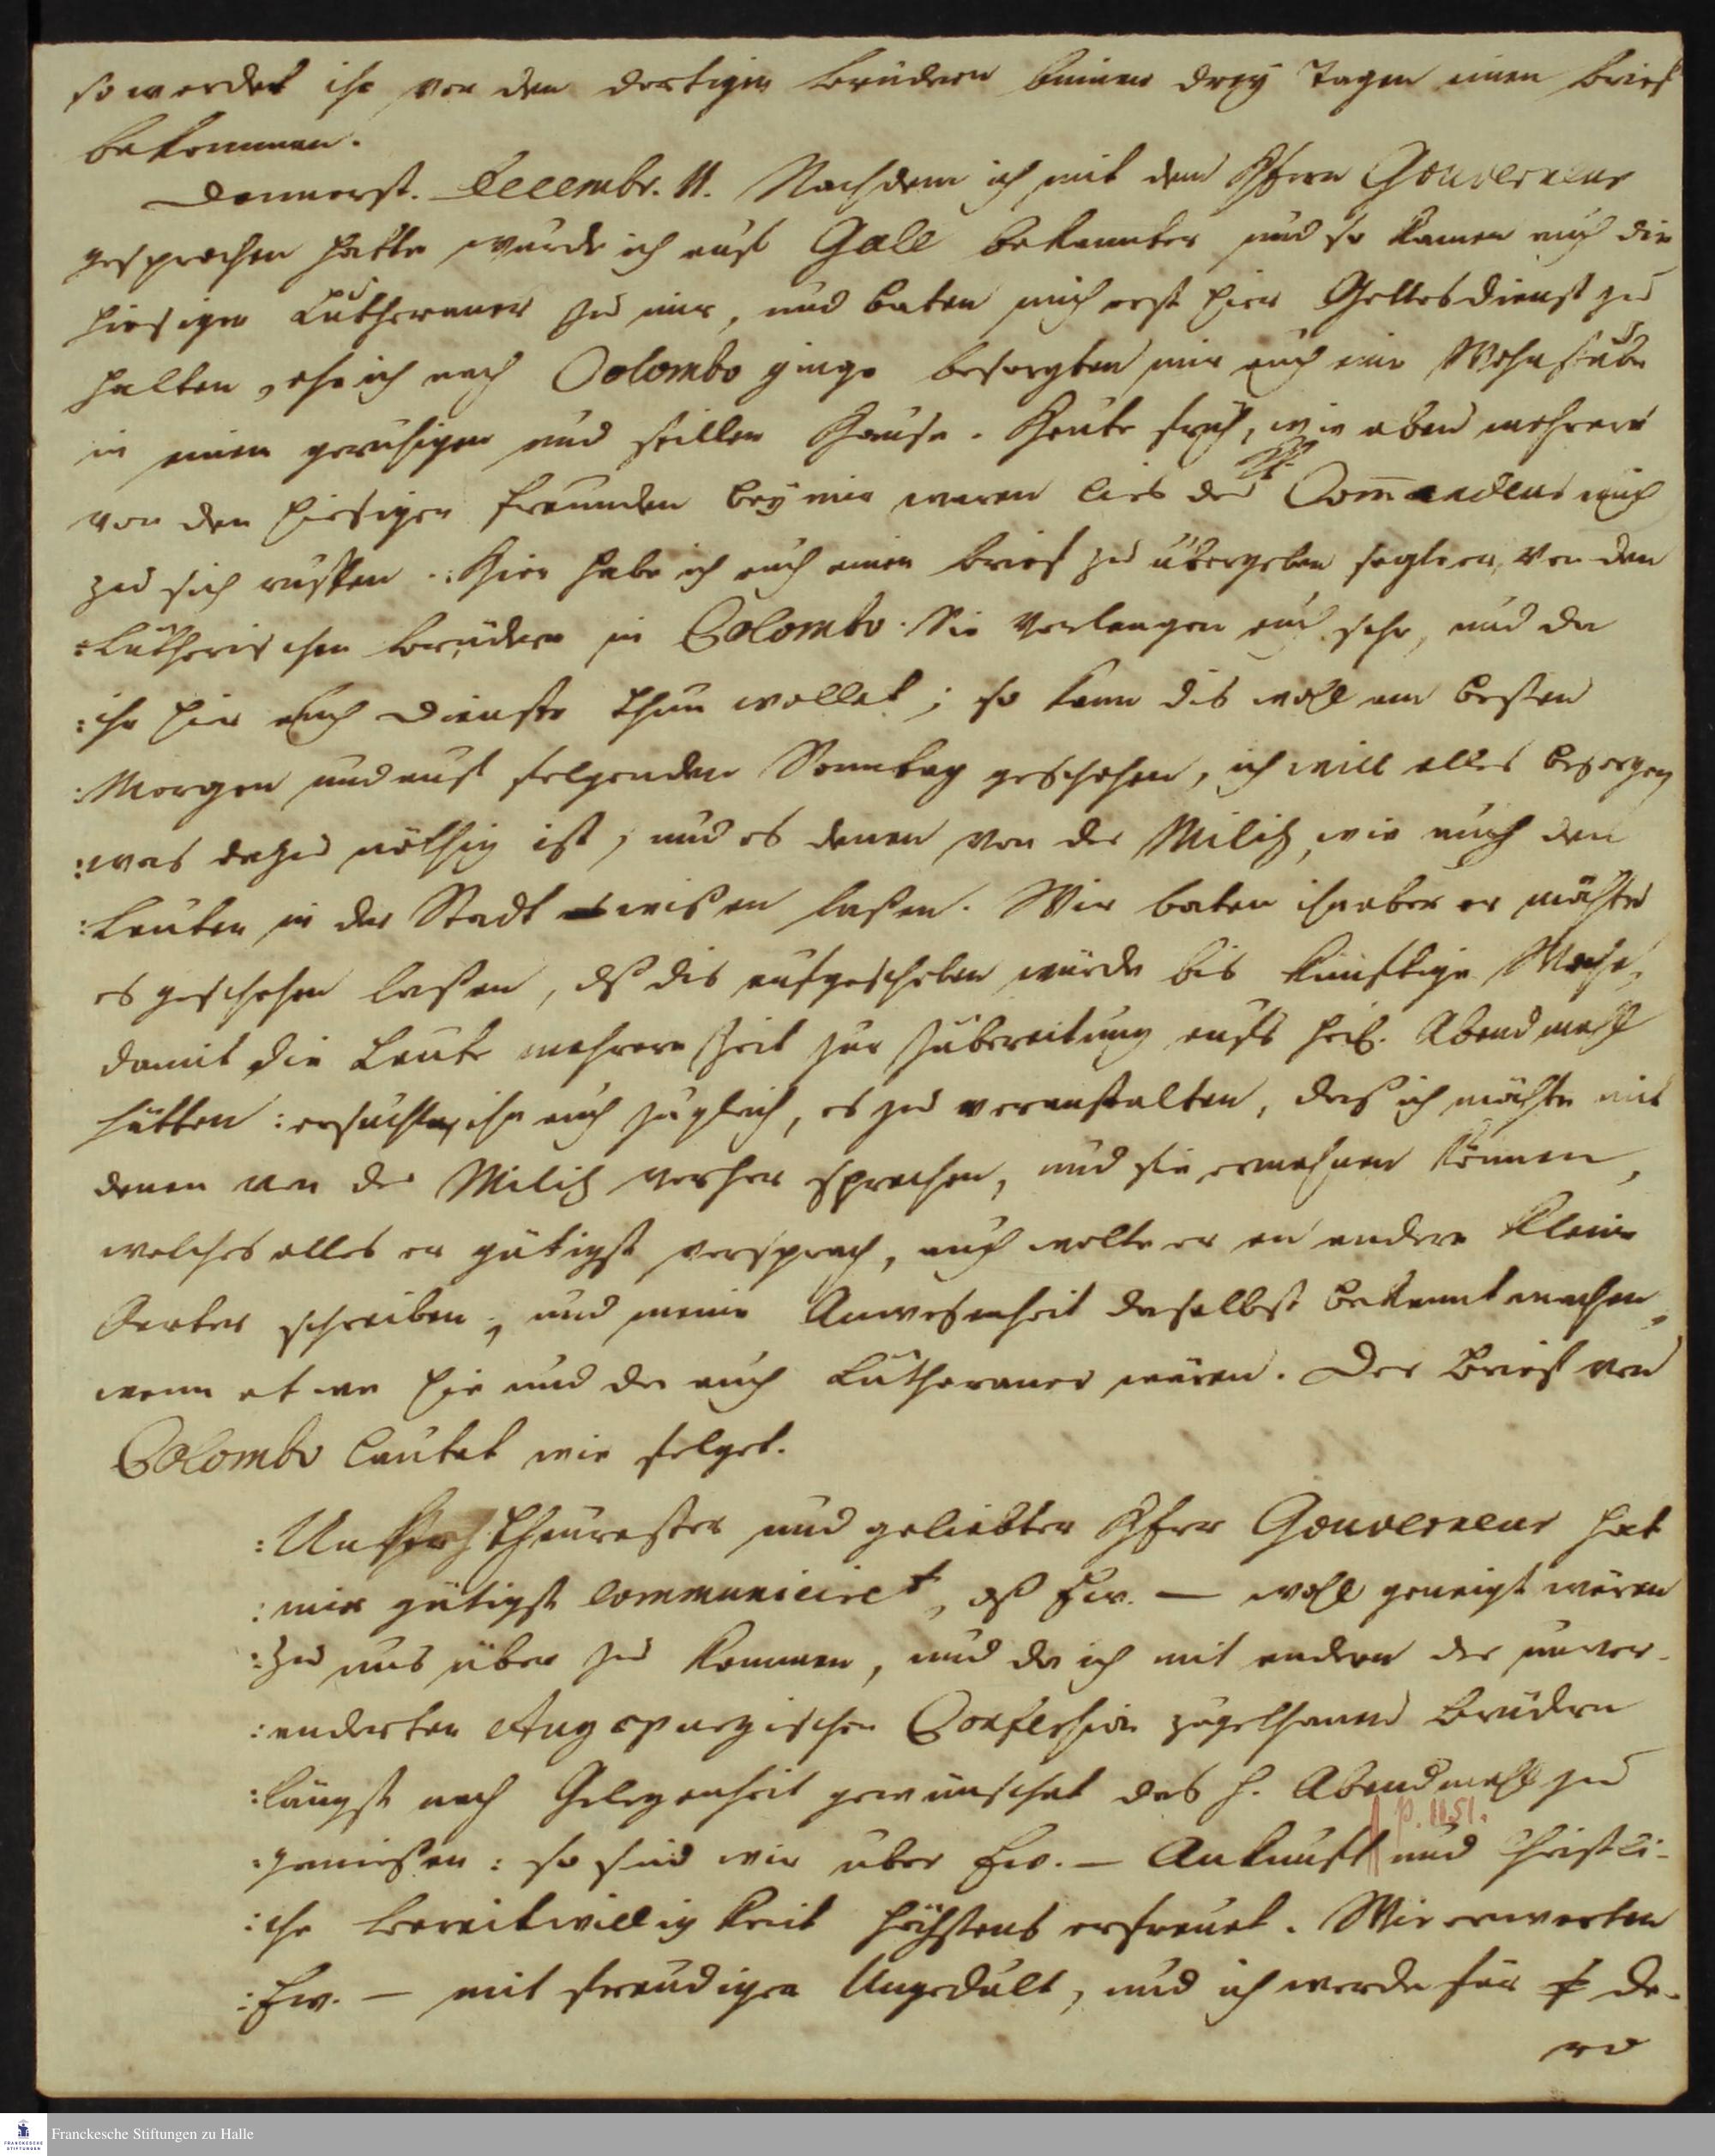 so werdet ihr von den dortigen Brüdern binnen drey Tagen einen Brief
bekommen.
Donnerst. Decembr. 11. Nachdem ich mit dem Hherrn Gouverneur
gesprochen hatte wurde ich auf Gale bekannter und so kamen auch die
hiesigen Lutheraner zu mir, und baten mich erst hier Gottesdienst zu
halten, ehe ich nach Colombo ginge besorgten mir auch eine Wohnstube
in einem geruhigen und stillen Hause. Heute früh, wie eben mehrere
von den hiesigen Freunden bey mir waren lies der H. Com̅andeur mich
zu sich ruffen. : Hier habe ich euch einen Brief zu übergeben sagte er, von den
: Lutherischen Brüdern in Colombo. Sie verlangen euch sehr, und da
: ihr hier auch Dienste thun wollet; so kann dis wohl am besten
: Morgen und auf folgenden Sonntag geschehen, ich will alles besorgen
: was dazu nöthig ist, und es denen von der Militz, wie auch den
: Leuten in der Stadt wißen laßen. Wir baten ihn aber er möchte
es geschehen laßen, dß dis aufgeschoben würde bis künftige Woche,
damit die Leute mehrere Zeit zur Zubereitung aufs heil. Abendmahl
hätten : ersuchten ihn auch zugleich, es zu veranstalten, daß ich möchte mit
denen von der Militz vorher sprechen, und sie ermahnen können,
welches alles er gütigst versprach, auch wolte er an andere kleine
Oerter schreiben, und meine Anwesenheit daselbst bekannt machen,
wenn etwa hie und da auch Lutheraner wären. Der Brief von
Colombo lautet wie folget.
: Unser theurester und geliebter Hherr Gouverneur hat
: mir gütigst communiciret, dß Ew. — wohl geneigt wären
: zu uns über zu kommen, und da ich mit andern der unver-
: enderten Augspurgischen Confession zugethanen Brüdern
: längst nach Gelegenheit gewünschet das h. Abendmahl zu
p. 1151.
: genießen : so sind wir über Ew. — Ankunft und Christli-
: che Bereitwilligkeit höchstens erfreuet. Wir erwarten
: Ew. — mit freudiger Ungedult, und ich werde für de-
ro
Franckesche Stiftungen zu Halle
FRANCKESCHE STIFTUNGEN